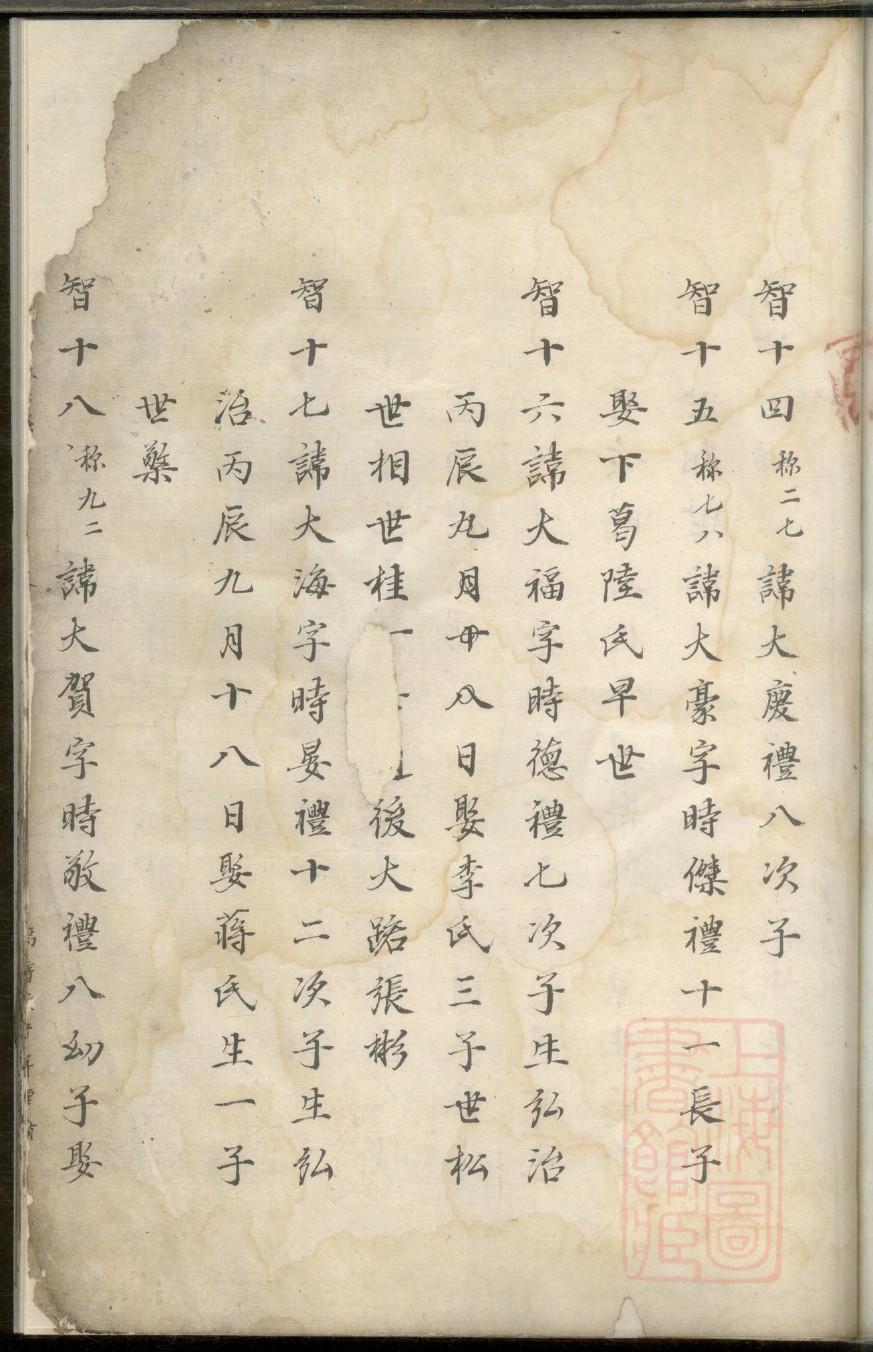 智十四称二七諱大慶禮八次子
智十五称七八諱大豪字時傑禮十一長子
娶下葛陸氏早世
智十六諱大福字時德禮七次子生弘治
丙辰九月廿八日娶李氏三子世松
世相世桂一後大路張彬
智十七諱大海字時晏禮十二次子生弘
治丙辰九月十八日娶蔣氏生一子
世槩
智十八称九二諱大賀字時敬禮八幼子娶
上海圖書館藏